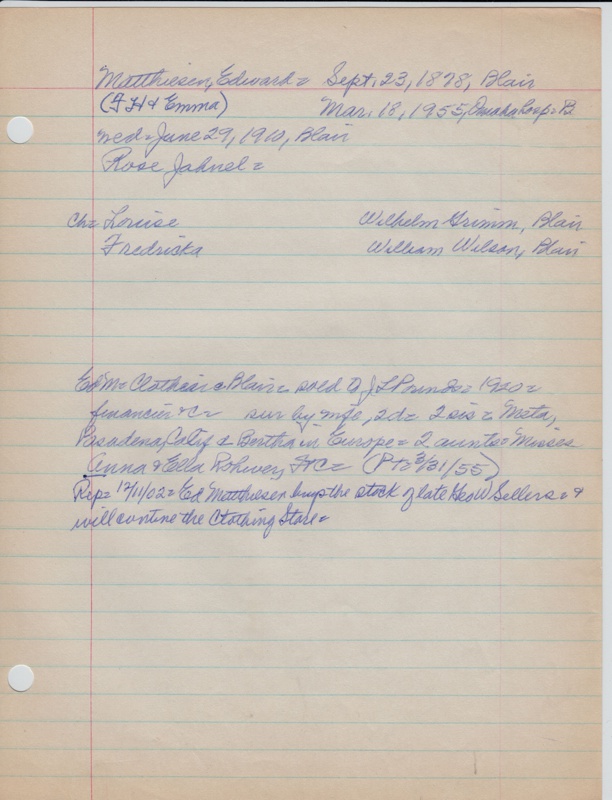 Matthiesen, Edward = Sept. 23, 1878, Blair
(F H & Emma) Mar. 18, 1955, Omaha hosp = B
wed = June 29, 1910, Blair
Rose Jahnel =
Ch = Louise Wilhelm Grimm, Blair
Fredricka William Wilson, Blair
Ed M = Clothier @ Blair = sold to J L Pounds = 1920 =
financier &c = sur by wife, 2d = 2 sis = Meta,
Pasadena, Calif & Bertha in Europe = 2 aunts = Misses
Anna & Ella Rohwer, Ft C = (P+S 3/31/55)
Rep = 12/11/02 = Ed Matthiesen buys the stock of late Geo W Sellers = &
will contine the Clothing Store =